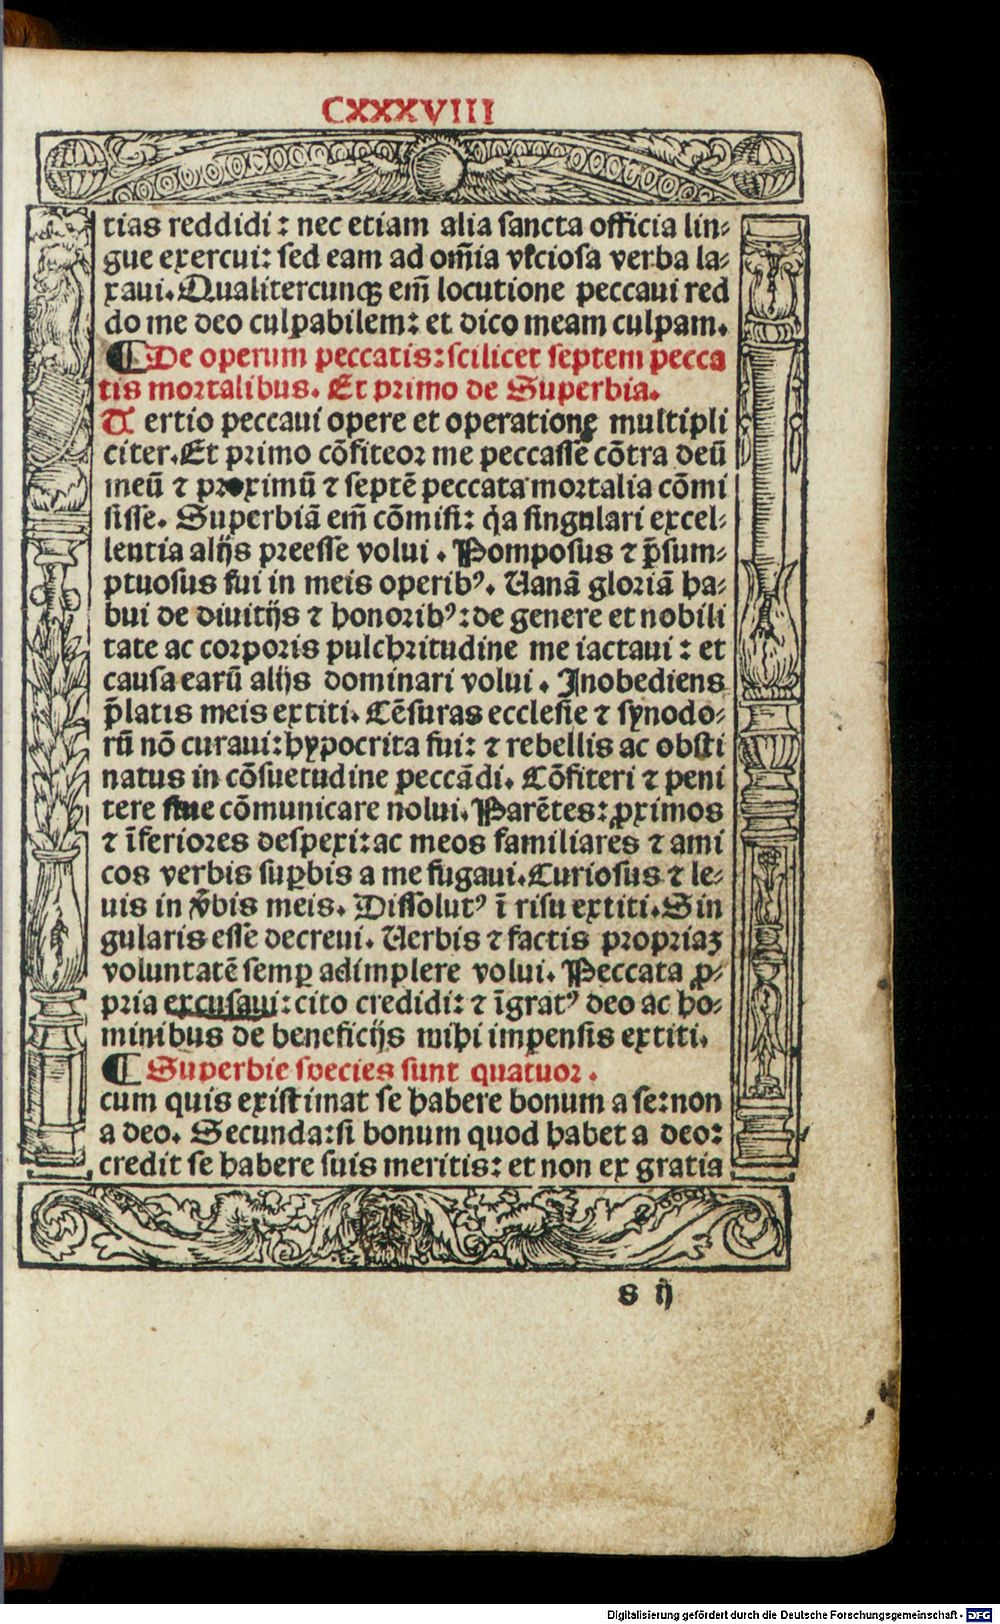 CXXXVIII
tias reddidi: nec etiam alia sancta officia lin⸗
gue exercui: sed eam ad om̃ia viciosa verba la⸗
xaui. Qualitercunqꝫ em̃ locutione peccaui red
do me deo culpabilem: et dico meam culpam.
¶ De operum peccatis: scilicet septem pecca
tis mortalibus. Et primo de Superbia.
Tertio peccaui opere et operatione multipli
citer. Et primo cõfiteor me peccasse cõtra deũ
meũ ⁊ proximũ ⁊ septẽ peccata mortalia cõmi
sisse. Superbiã em̃ cõmisi: q̇a singulari excel⸗
lentia alijs preesse volui. Pomposus ⁊ p̃sum⸗
ptuosus fui in meis operibꝰ. Vanã gloriã ha⸗
bui de diuitijs ⁊ honoribꝰ: de genere et nobili
tate ac corporis pulchritudine me iactaui: et
causa earũ alijs dominari volui. Inobediens
p̃latis meis extiti. Cẽsuras ecclesie ⁊ synodo⸗
rũ nõ curaui: hypocrita fui: ⁊ rebellis ac obsti
natus in cõsuetudine peccãdi. Cõfiteri ⁊ peni
tere siue cõmunicare nolui. Parẽtes: ꝓximos
⁊ ĩferiores despexi: ac meos familiares ⁊ ami
cos verbis suꝑbis a me fugaui. Curiosus ⁊ le⸗
uis in v̾bis meis. Dissolutꝰ ĩ risu extiti. Sin
gularis esse decreui. Verbis ⁊ factis propriaꝫ
voluntatẽ semꝑ adimplere volui. Peccata ꝓ⸗
pria excusaui: cito credidi: ⁊ ĩgratꝰ deo ac ho⸗
minibus de beneficijs mihi impensis extiti.
¶ Superbie species sunt quatuor.
cum quis existimat se habere bonum a se: non
a deo. Secunda: si bonum quod habet a deo:
credit se habere suis meritis: et non ex gratia
s ij
Digitalisierung gefördert durch die Deutsche Forschungsgemeinschaft - DFG